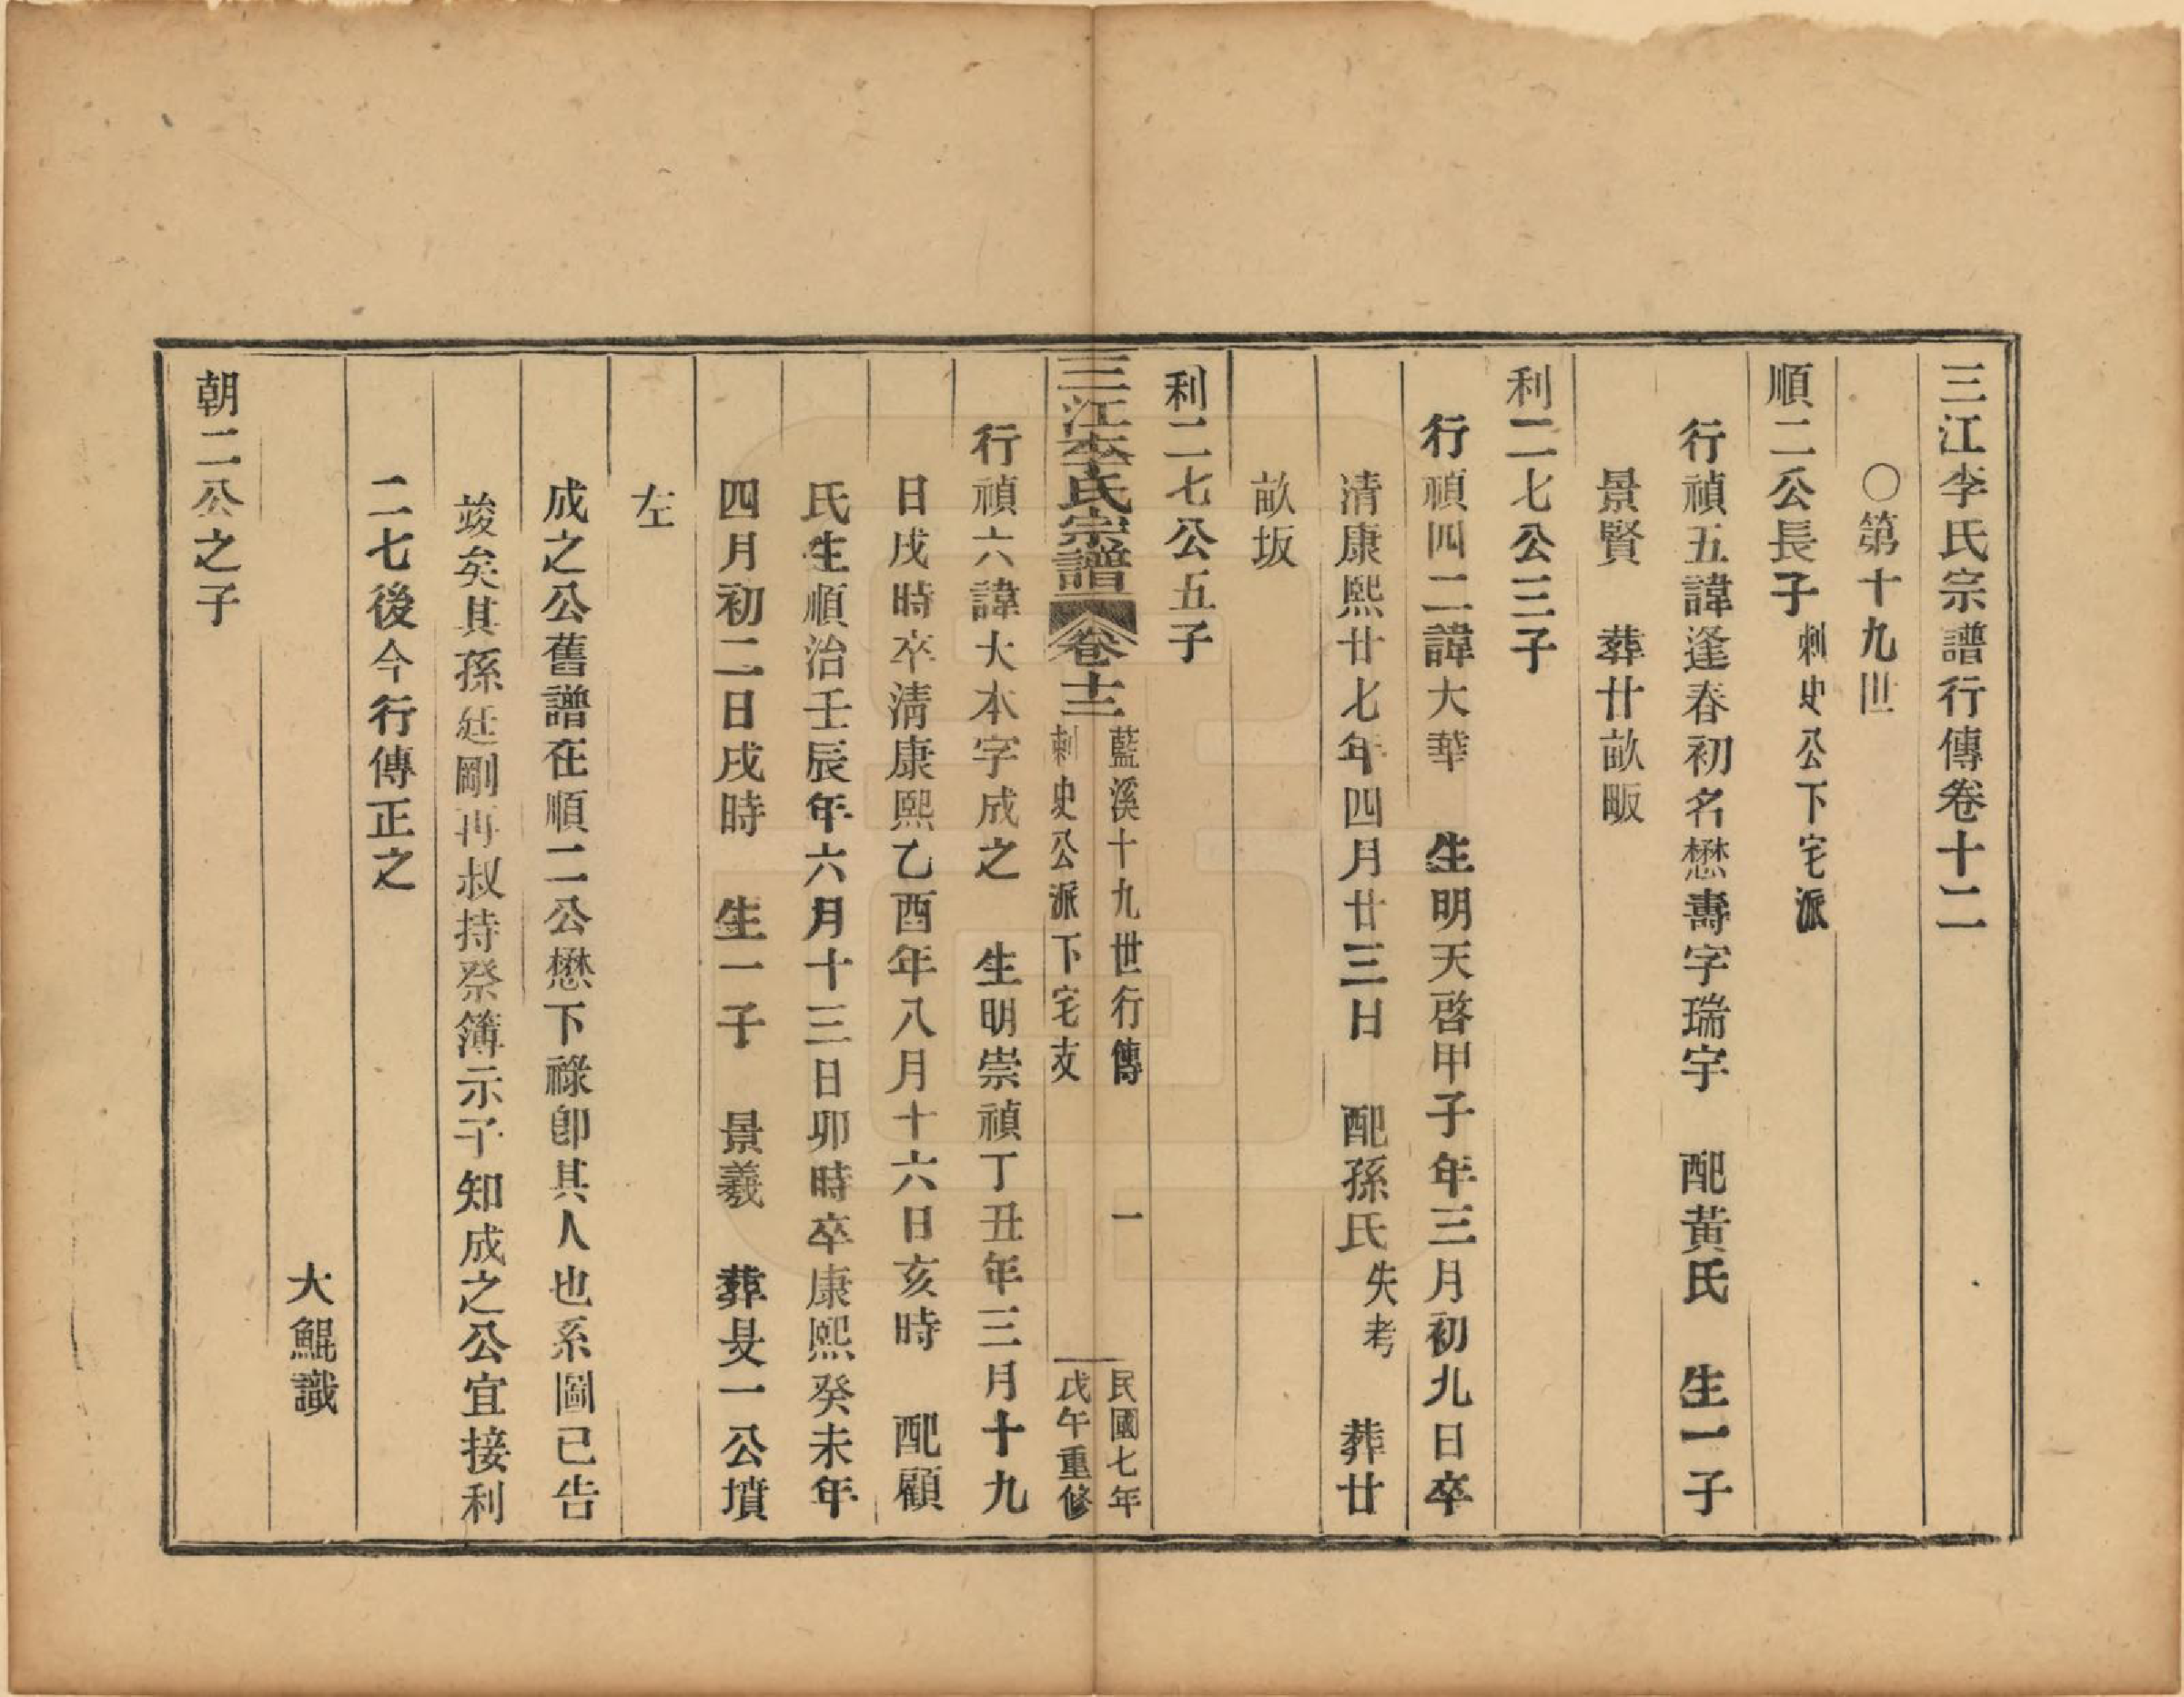 三江李氏宗譜行傳卷十二
〇第十九世
順二公長子刺史公下宅派
行禎五諱逢春初名懋壽字瑞宇　配黃氏　生一子
景賢　葬廿畝畈
利二七公三子
行禎四二諱大華　生明天啓甲子年三月初九日卒
清康熙廿七年四月廿三日　配孫氏失考　葬廿
畝坂
利二七公五子
三江李氏宗譜　卷十二　藍溪十九世行傳　一　民國七年
刺史公派下宅支　戊午重修
行禎六諱大本字成之　生明崇禎丁丑年三月十九
日戌時卒清康熙乙酉年八月十六日亥時　配顧
氏生順治壬辰年六月十三日卯時卒康熙癸未年
四月初二日戌時　生一子　景羲　葬旻一公墳
左
成之公舊譜在順二公懋下祿卽其人也系圖已告
竣矣其孫廷剛再叔持祭簿示予知成之公宜接利
二七後今行傳正之
大鯤識
朝二公之子